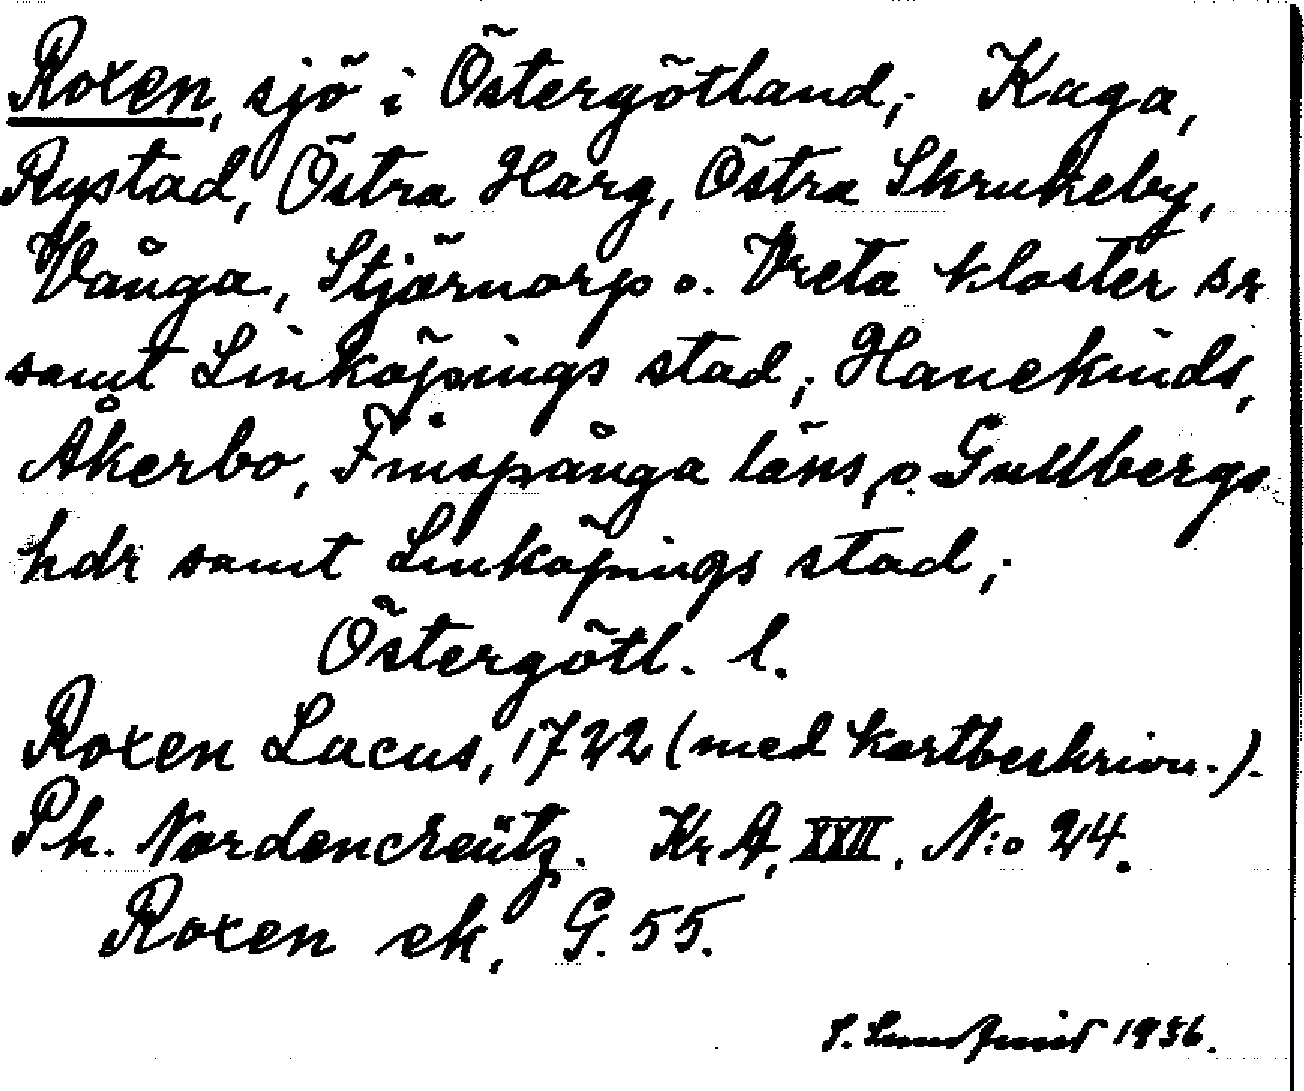 Roxen, sjö i Östergötland; Kaga,
Rystad, Östra Harg, Östra Skrukeby,
Vånga, Stjärnorp o. Vreta kloster sr
samt Linköpings stad; Hanekinds,
Åkerbo, Finspånga läns, o. Gullbergs
hdr samt Linköpings stad;
Östergötl. l.
Roxen Lacus, 1722 (med kartbeskrivn.).
Ph. Nordencreütz. Kr. A. XXII. N:o 24.
Roxen ek, G. 55.
S. Lundqvist 1936.